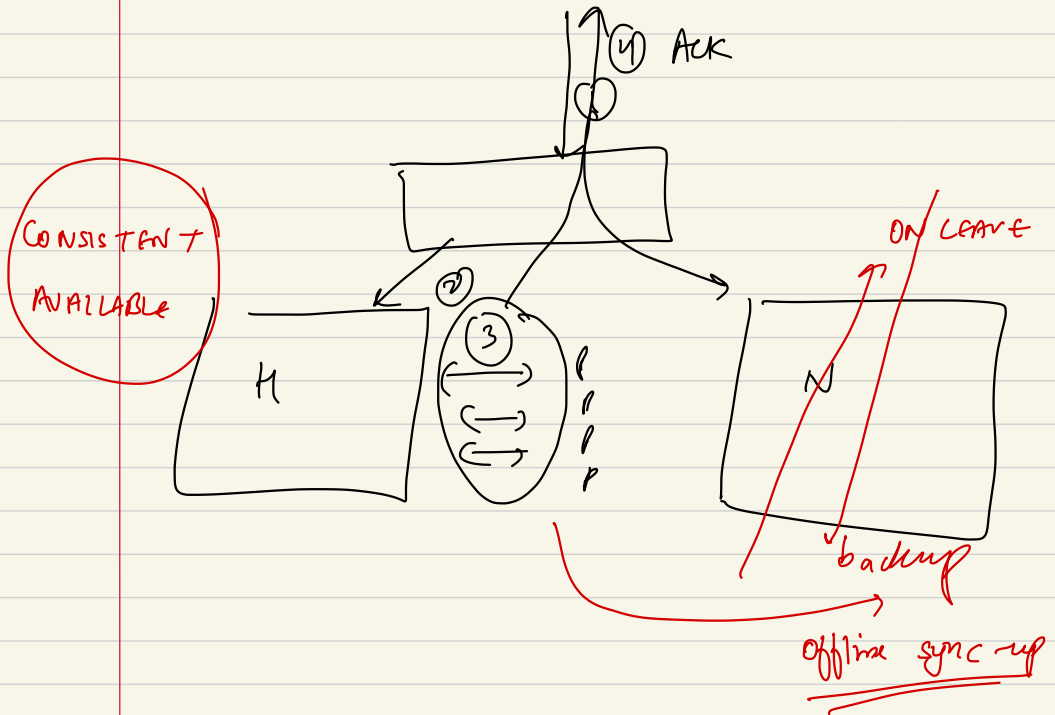 ④ ACK
①
CONSISTENT
AVAILABLE
ON LEAVE
②
③
H
N
P
P
P
P
backup
Offline sync-up